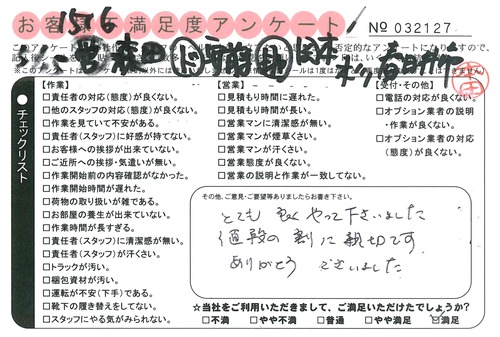 お客様不満足度アンケート
1516
No 032127
【作業】
□責任者の対応(態度)が良くない。
□他のスタッフの対応(態度)が良くない。
□作業を見ていて不安がある。
□責任者(スタッフ)に好感が持てない。
□お客様への挨拶が出来ていない。
□ご近所への挨拶・気遣いが無い。
□作業開始前の内容確認がなかった。
□作業開始時間が遅れた。
□荷物の取り扱いが雑である。
□お部屋の養生が出来ていない。
□作業時間が長すぎる。
□責任者(スタッフ)に清潔感が無い。
□責任者(スタッフ)が汗くさい。
□トラックが汚い。
□梱包資材が汚い。
□運転が不安(下手)である。
□靴下の履き替えをしてない。
□スタッフにやる気がみられない。
【営業】
□見積もり時間に遅れた。
□見積もり時間が長い。
□営業マンに清潔感が無い。
□営業マンが煙草くさい。
□営業マンが汗くさい。
□営業態度が良くない。
□営業の説明と作業が一致してない。
【受付・その他】
□電話の対応が良くない。
□オプション業者の説明
・作業が良くない。
□オプション業者の対応
(態度)が良くない。
チェックリスト
その他、ご意見・ご要望等ありましたらお書き下さい。
とても良くやって下さいました
値段の割に親切です
ありがとうございました
☆当社をご利用いただきまして、ご満足いただけたでしょうか?
□不満 □やや不満 □普通 □やや満足 □満足